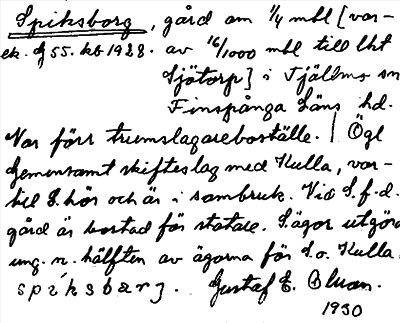 Spiksborg, gård om 1/4 mtl [var-
ek. § 55. kb 1928. av 16/1000 mtl till lht
Sjötorp] i Tjällmo sn
Finspånga Läns hd.
Var förr trumslagareboställe. | Ögl
Gemensamt skifteslag med Kulla, var-
till S. hör och är i sambruk. Vid S. f.d.
gård är bostad för statare. S. ägor utgöra
ung. n. hälften av ägorna för S. o. Kulla.
spiksbærj. Gustaf E.
1930